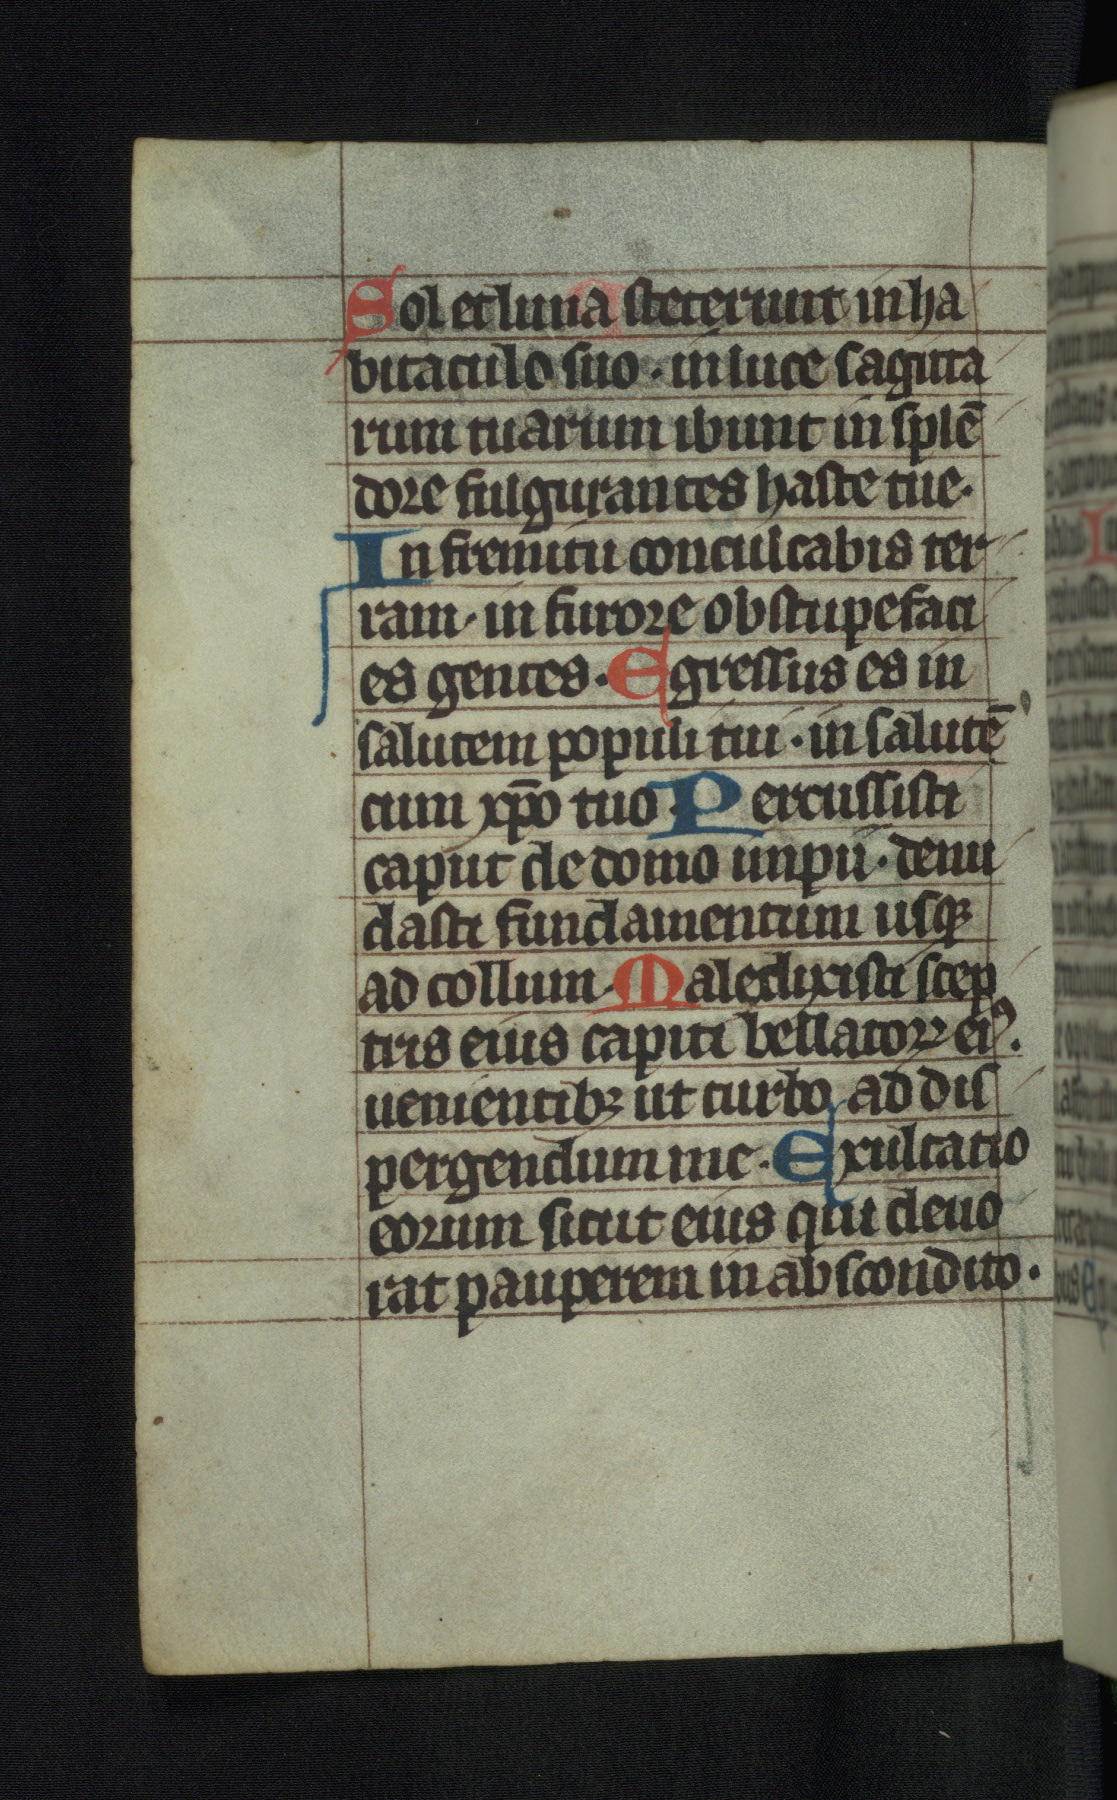 Sol et luna steterunt in ha
bitaculo suo · in luce sagitta
rum tuarum ibunt in splē
dore fulgurantes haste tue.
In fremitu conculcabis ter
ram · in furore obstupefaci
es gentes · Egressus es in
salutem populi tui · in salutē
cum xp̄o tuo · Percussisti
caput de domo impii · denu
dasti fundamentum usqꝫ
ad collum · Maledixisti scep
tris eius capiti bellatoꝝ eiꝰ.
uenientibꝫ ut turbo ad dis
pergendum me · Exultatio
eorum sicut eius qui deuo
rat pauperem in abscondito ·